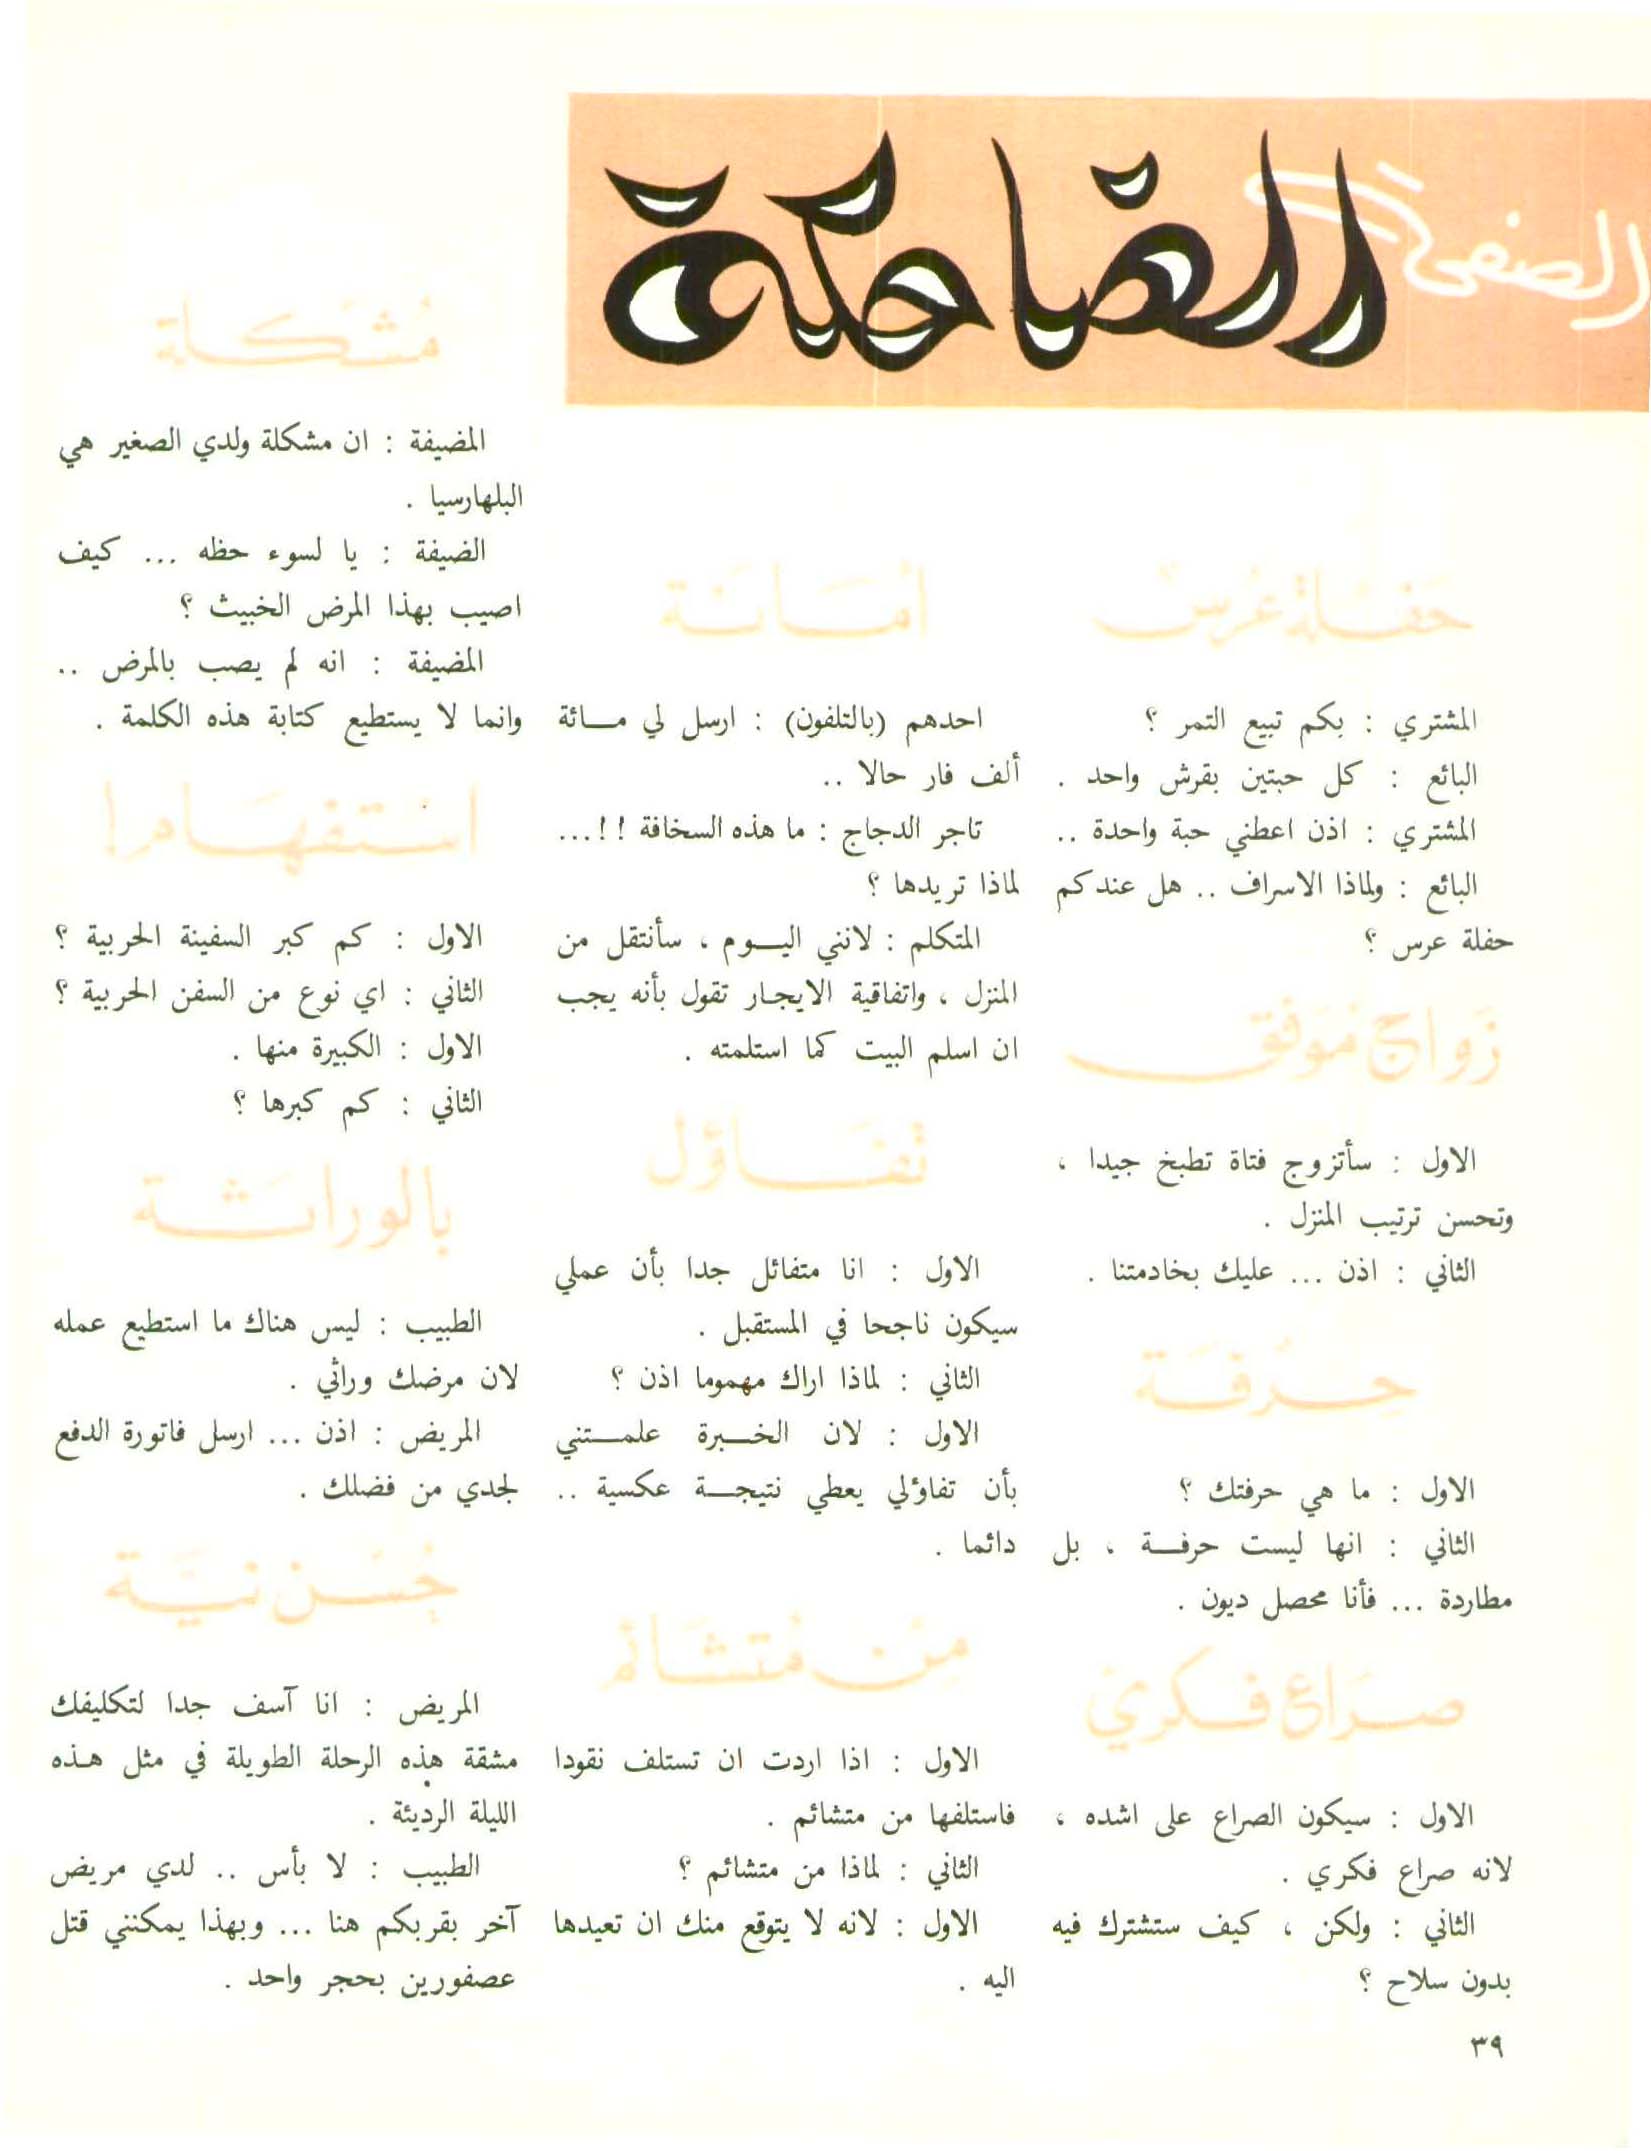 الصفحة
الضاحكة
حَفلة عُرس
المشتري : بكم تبيع التمر ؟
البائع : كل حبتين بقرش واحد .
المشتري : اذن اعطني حبة واحدة ..
البائع : ولماذا الاسراف .. هل عندكم
حفلة عرس ؟
زَواج مُوَفق
الاول : سأتزوج فتاة تطبخ جيدا ،
وتحسن ترتيب المنزل .
الثاني : اذن ... عليك بخادمتنا .
حِرْفَة
الاول : ما هي حرفتك ؟
الثاني : انها ليست حرفـــة ، بل
مطاردة ... فأنا محصل ديون .
صِرَاع فِكري
الاول : سيكون الصراع على اشده ،
لانه صراع فكري .
الثاني : ولكن ، كيف ستشترك فيه
بدون سلاح ؟
أمَانَة
احدهم (بالتلفون) : ارسل لي مـــائة
ألف فار حالا ..
تاجر الدجاج : ما هذه السخافة !!...
لماذا تريدها ؟
المتكلم : لانني اليـــوم ، سأنتقل من
المنزل ، واتفاقية الايجـار تقول بأنه يجب
ان اسلم البيت كما استلمته .
تَفَاؤل
الاول : انا متفائل جدا بأن عملي
سيكون ناجحا في المستقبل .
الثاني : لماذا اراك مهموما اذن ؟
الاول : لان الخـــبرة علمـــتني
بأن تفاؤلي يعطي نتيجـــة عكسية ..
دائما .
مِنْ مُتشَائم
الاول : اذا اردت ان تستلف نقودا
فاستلفها من متشائم .
الثاني : لماذا من متشائم ؟
الاول : لانه لا يتوقع منك ان تعيدها
اليه .
مُشكَلة
المضيفة : ان مشكلة ولدي الصغير هي
البلهارسيا .
الضيفة : يا لسوء حظه ... كيف
اصيب بهذا المرض الخبيث ؟
المضيفة : انه لم يصب بالمرض ..
وانما لا يستطيع كتابة هذه الكلمة .
استفهَام!
الاول : كم كبر السفينة الحربية ؟
الثاني : اي نوع من السفن الحربية ؟
الاول : الكبيرة منها .
الثاني : كم كبرها ؟
بالورَاثَة
الطبيب : ليس هناك ما استطيع عمله
لان مرضك وراثي .
المريض : اذن ... ارسل فاتورة الدفع
لجدي من فضلك .
حُسْن نيَّة
المريض : انا آسف جدا لتكليفك
مشقة هذه الرحلة الطويلة في مثل هـذه
الليلة الرديئة .
الطبيب : لا بأس .. لدي مريض
آخر بقربكم هنا ... وبهذا يمكنني قتل
عصفورين بحجر واحد .
٣٩